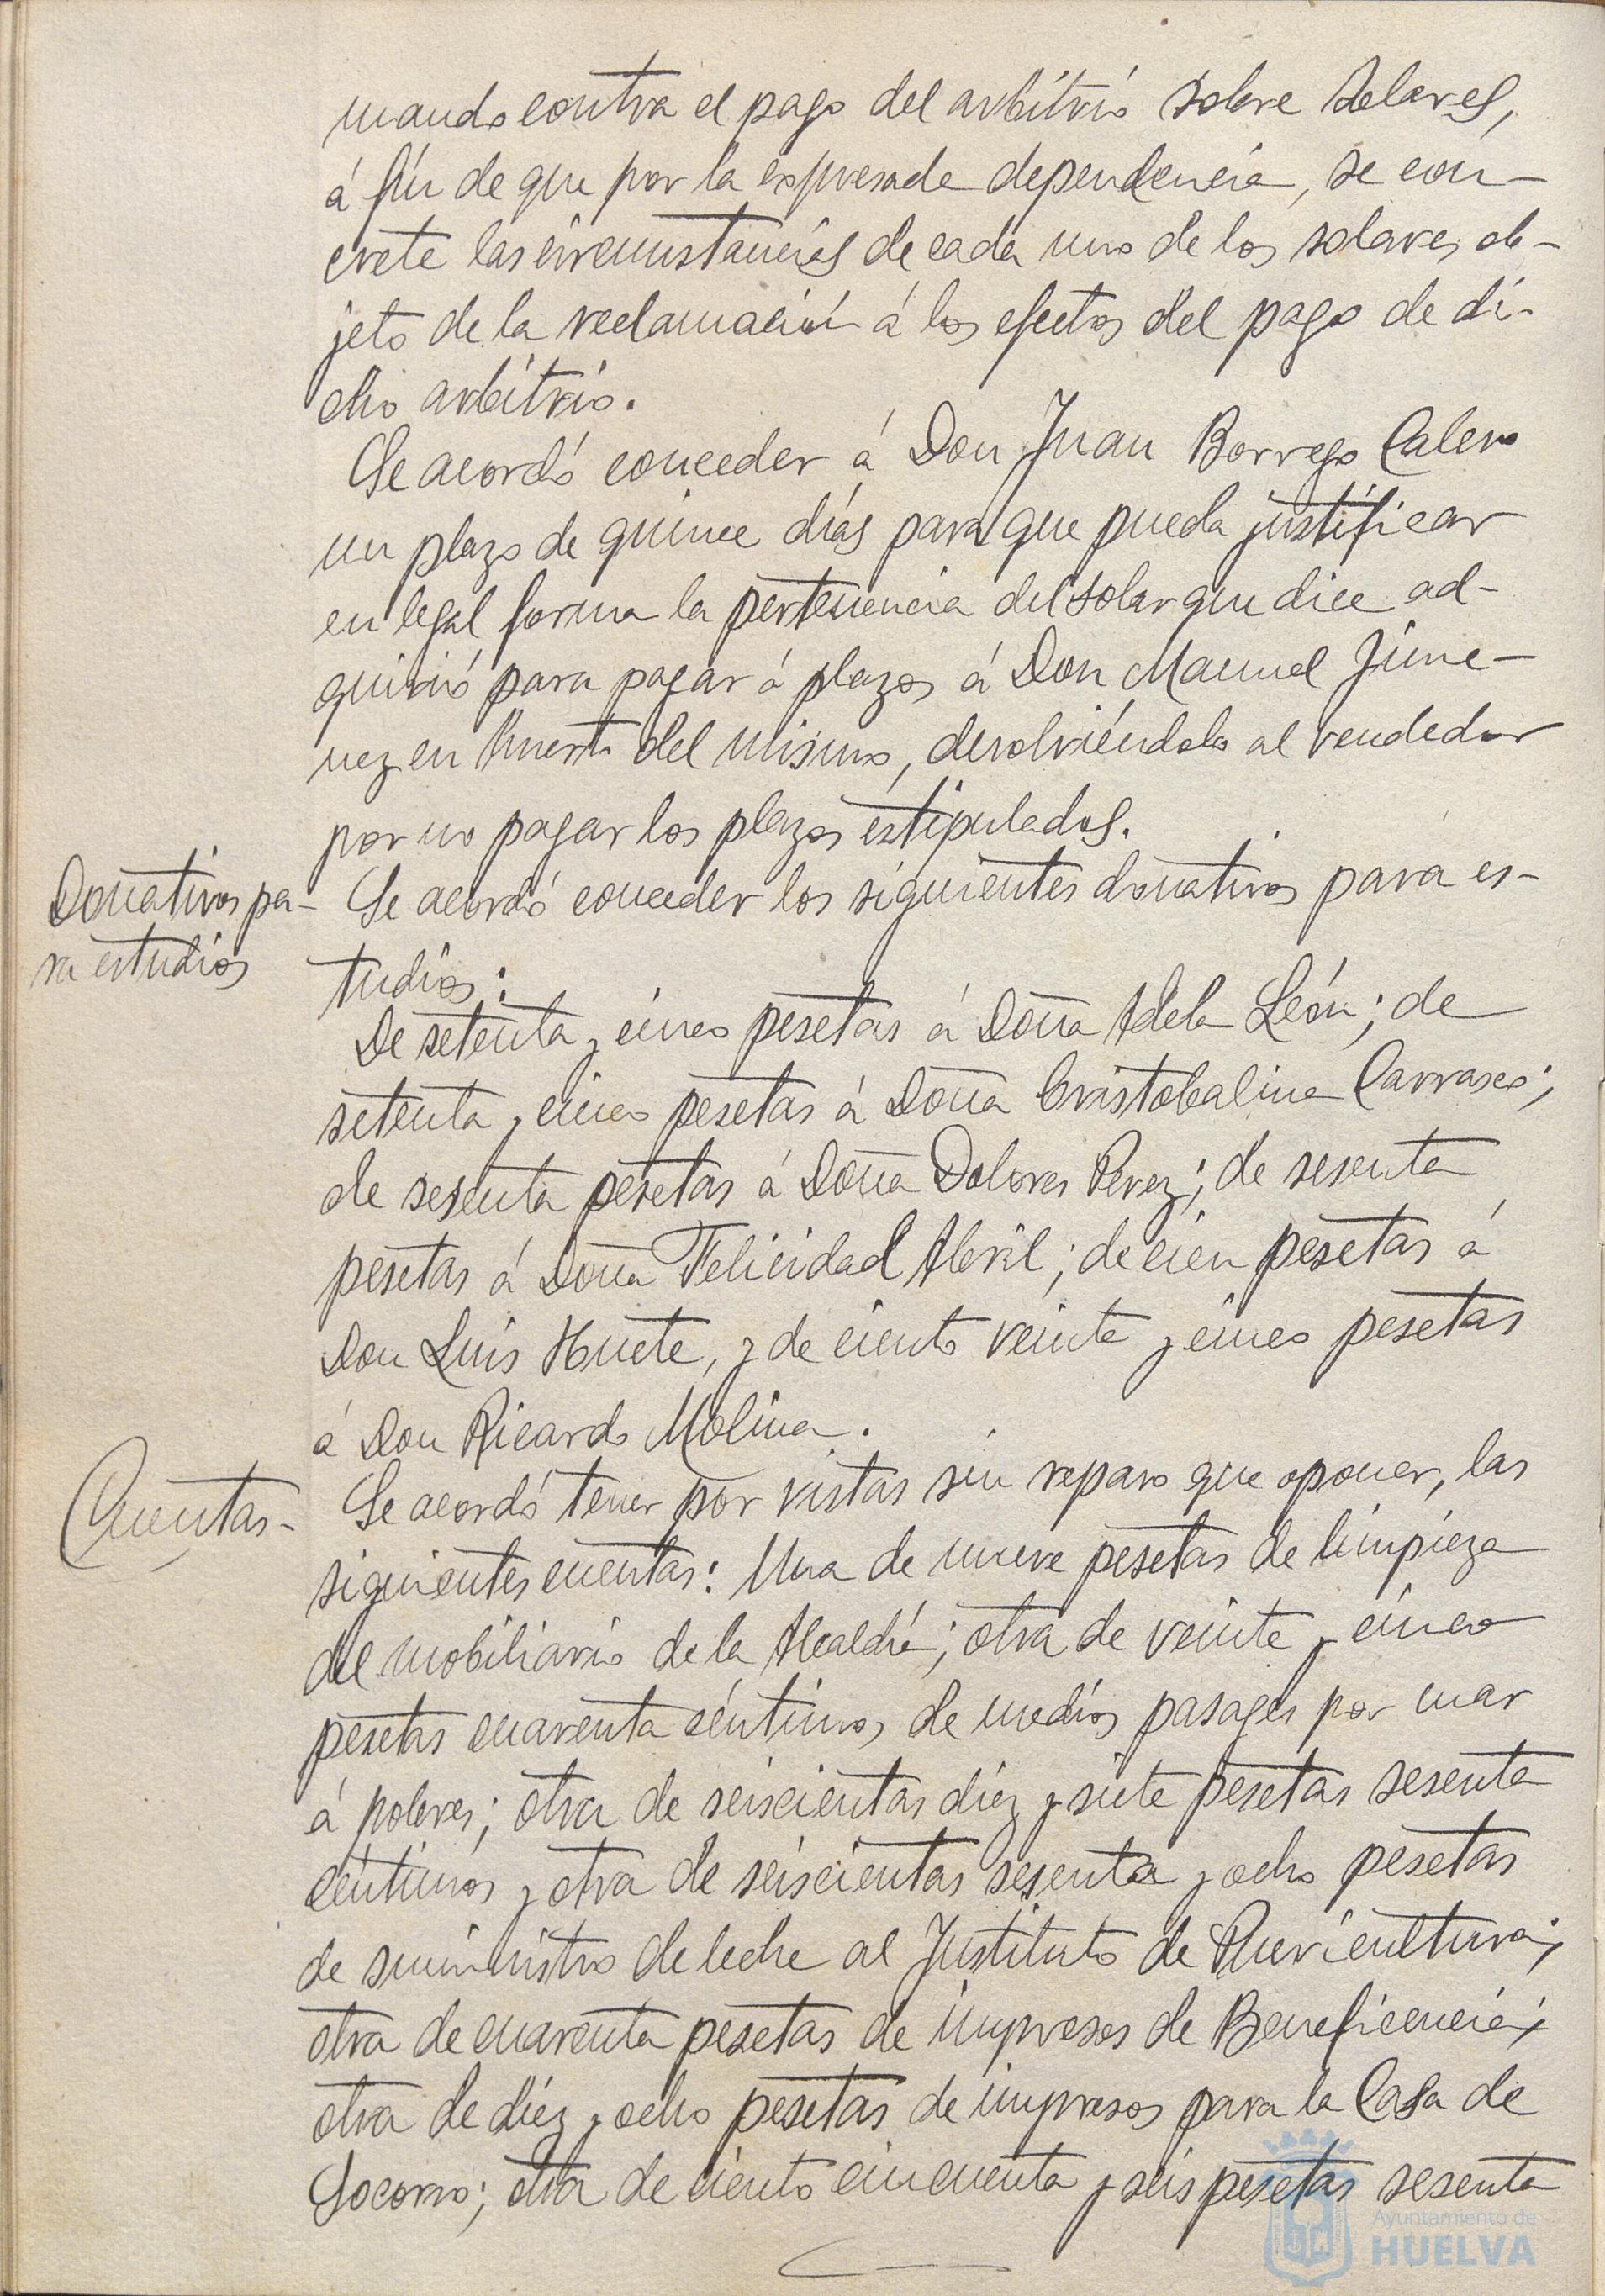 mando contra el pago del arbitrio sobre solares,
á fin de que por la expresada dependencia, se con-
crete las circunstancias de cada uno de los solares ob-
jeto de la reclamación á los efectos del pago de di-
cho arbitrio.
Se acordó conceder á Don Juan Borrego Calero
un plazo de quince días para que pueda justificar
en legal forma la pertenencia del solar que dice ad-
quirió para pagar á plazos á Don Manuel Jime-
nez en Huerta del mismo, devolviéndolo al vendedor
por no pagar los plazos estipulados.
Donativos pa-
ra estudios
Se acordó conceder los siguientes donativos para es-
tudios:
De setenta y cinco pesetas á Doña Adela León; de
setenta y cinco pesetas á Doña Cristobalina Carrasco;
de sesenta pesetas á Doña Dolores Perez; de sesenta
pesetas á Doña Felicidad Abril; de cien pesetas á
Don Luis Huete, y de ciento veinte y cinco pesetas
á Don Ricardo Molina.
Cuentas-
Se acordó tener por vistas sin reparo que oponer, las
siguientes cuentas: Una de nueve pesetas de limpieza
del mobiliario de la Alcaldía; otra de veinte y cinco
pesetas cuarenta céntimos de medios pasages por mar
á pobres; otra de seiscientas diez y siete pesetas sesenta
céntimos y otra de seiscientas sesenta y ocho pesetas
de suministro de leche al Instituto de Puericultura;
otra de cuarenta pesetas de impresos de Beneficencia;
otra de diez y ocho pesetas de impresos para la Casa de
Socorro; otra de ciento cincuenta y seis pesetas sesenta
Ayuntamiento de
HUELVA